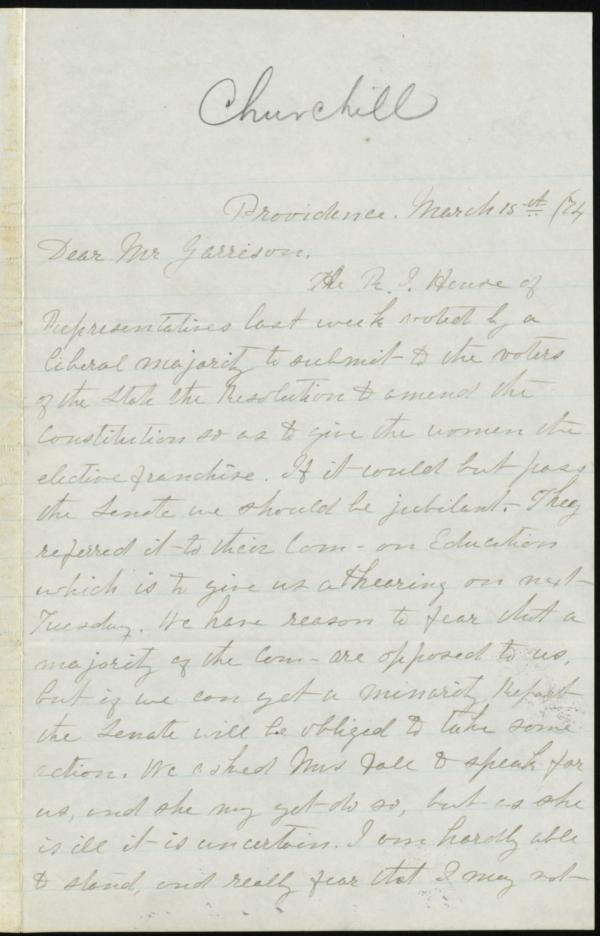 Churchill
Providence. March 15th /74
Dear Mr Garrison.
The R. I. House of
Representatives last week voted by a
liberal majority to submit to the voters
of the State the Resolution to amend the
Constitution so as to give the women the
elective franchise. If it could but pass
the Senate we should be jubilant. They
referred it to their Com- on Education
which is to give us a hearing on next
Tuesday. We have reason to fear that a
majority of the Com- are opposed to us,
but if we can get a minority Report
the Senate will be obliged to take some
action. We asked Mrs to speak for
us, and she may yet do so, but as she
is ill it is uncertain. I am hardly able
to stand, and really fear that I may not